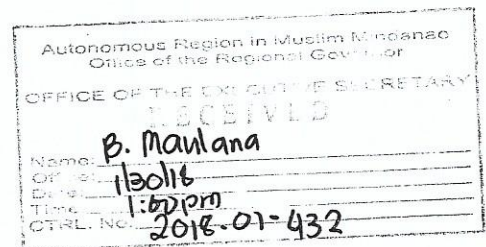 Autonomous Region in Muslim Mindanao
Office of the Regional Governor
OFFICE OF THE EXECUTIVE SECRETARY
RECEIVED
Name: B. Maulana
Office:
Date: 1/30/18
Time: pm
CTRL. No. 2018-01-432